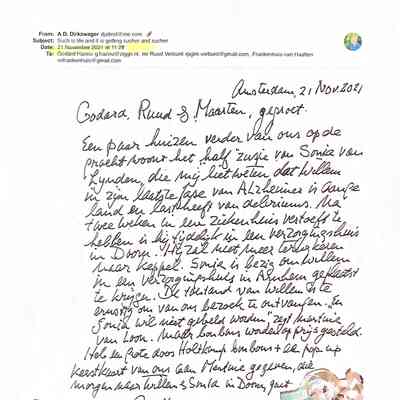 From: A.D. Dirkzwager
Subject: Such is life and it is getting sucher and sucher
Date: 21 November 2021 at 11:28
To: Godard Hanno
Amsterdam, 21 Nov. 2021
Godard, Ruud & Maarten, gegroet.
Een paar huizen verder van ons op de
gracht woont het half zusje van Sonia van
Lynden, die mij liet weten dat Willem
in zijn laatste fase van Alzheimer is aange
land en last heeft van deleriums. Na
twee weken in een ziekenhuis vertoefd te
hebben is hij tijdelijk in een verzorgingshuis
in Doorn. Hij zal niet meer terugkeren
naar Keppel. Sonia is bezig om Willem
in een verzorgingshuis in Arnhem geplaatst
te krijgen. De toestand van Willem is te
ernstig om van ons bezoek te ontvangen. En
Sonia wil niet gebeld worden, zegt Martine
van Loon. Maar bonbons worden op prijs gesteld.
Heb een grote doos Holtkamp bonbons + de pop up
kerstkaart van ons aan Martine gegeven, die
morgen naar Willem & Sonia in Doorn gaat